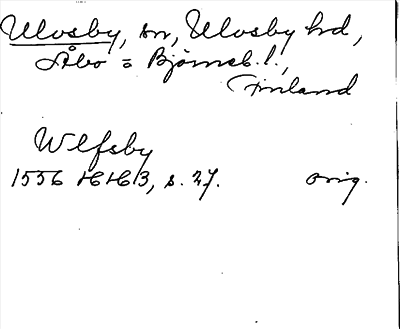 Ulvsby, sn, Ulvsby hd,
Åbo = Bjørneb. l.,
Finland
Wlfsby
1556 HH 3, s. 27. orig.